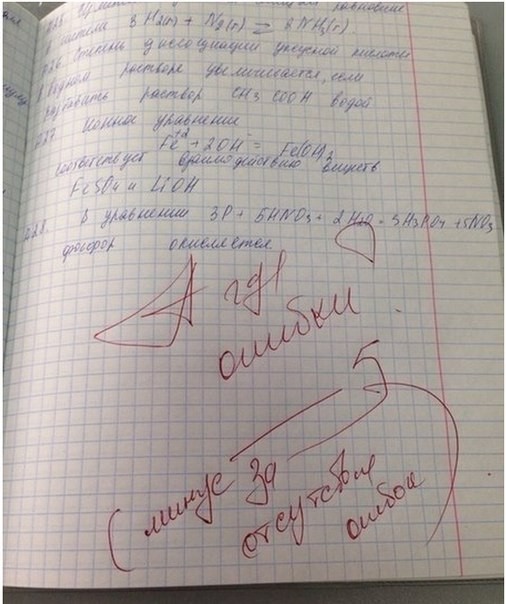 равновесие
3 H2(г) + N2(г) ⇄ 2 NH3(г).
Степень диссоциации уксусной кислоты
в водном растворе увеличивается, если
разбавить раствор CH3COOH водой
Ионное уравнение
Fe+2 + 2OH- = Fe(OH)2
соответствует взаимодействию веществ
FeSO4 и LiOH
В уравнении 3P + 5HNO3 + 2H2O = 3H3PO4 + 5NO
фосфор окисляется
А где
ошибки
5-
(минус за
отсутствие
ошибок)